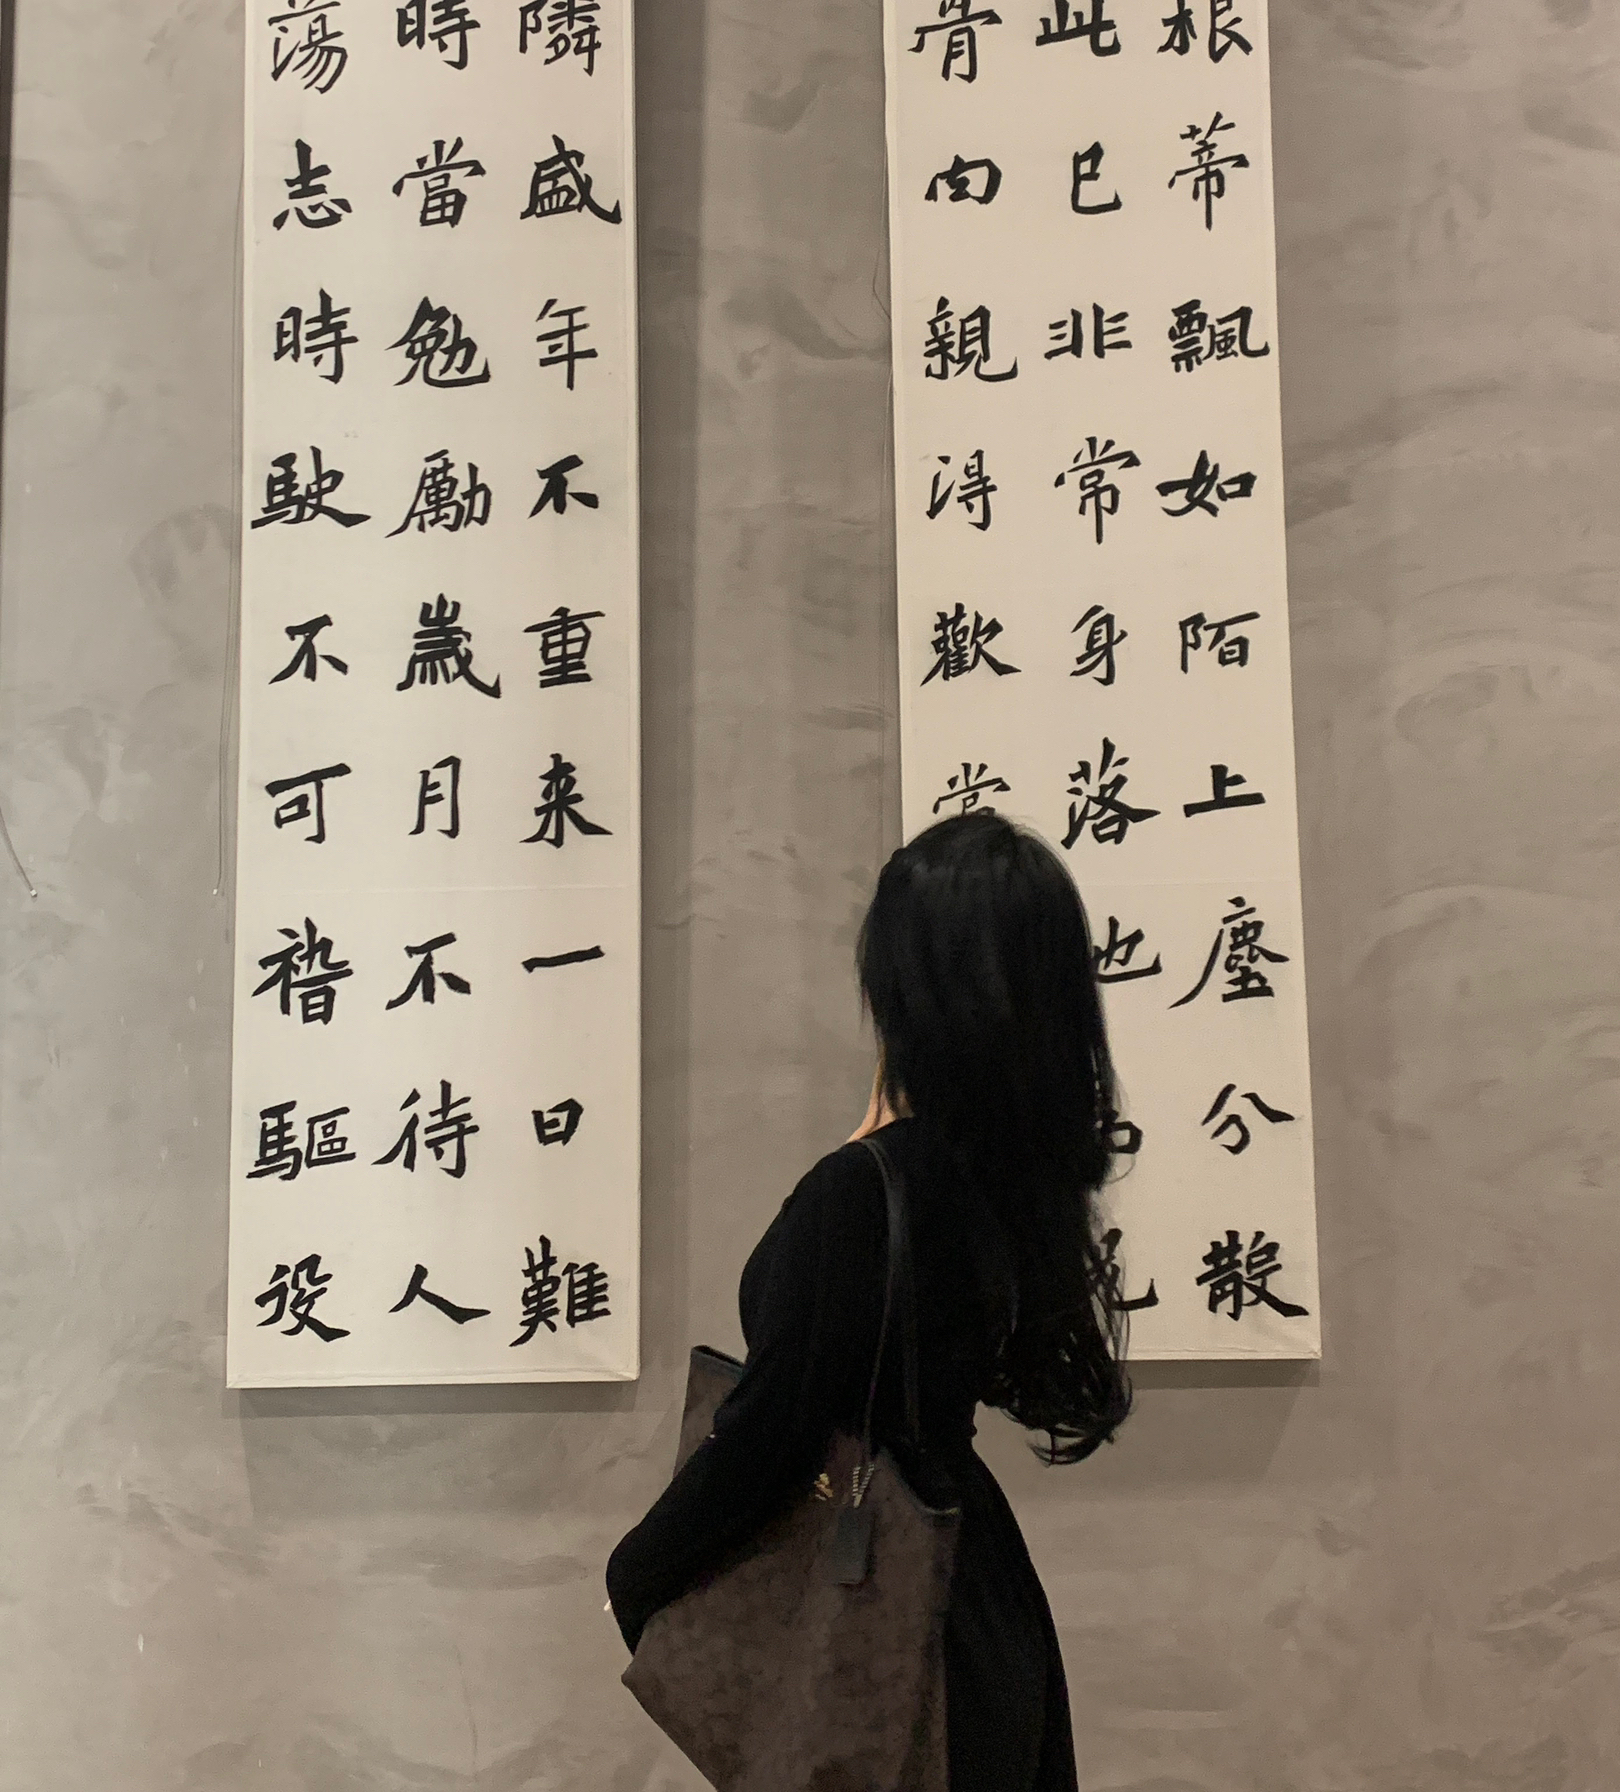 根蒂飄如陌上塵分散
此已非常身落
骨肉親得歡當
隣盛年不重来一日難
時當勉勵歲月不待人
蕩志時駛不可稽驅役